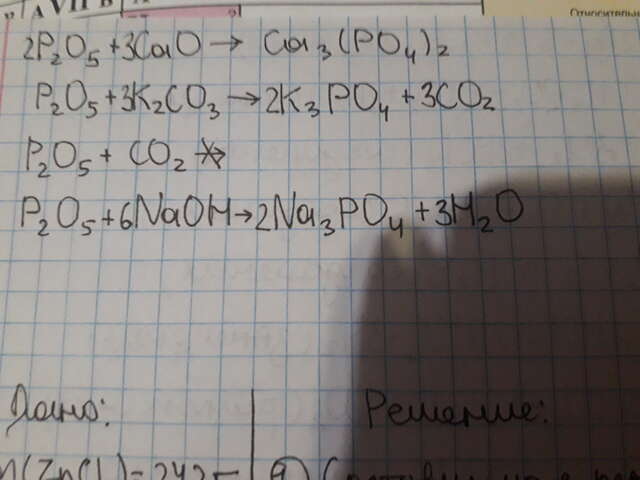 VII B
Относительн
2P₂O₅ + 3CaO → Ca₃(PO₄)₂
P₂O₅ + 3K₂CO₃ → 2K₃PO₄ + 3CO₂
P₂O₅ + CO₂ ↛
P₂O₅ + 6NaOH → 2Na₃PO₄ + 3H₂O
Дано: Решение: